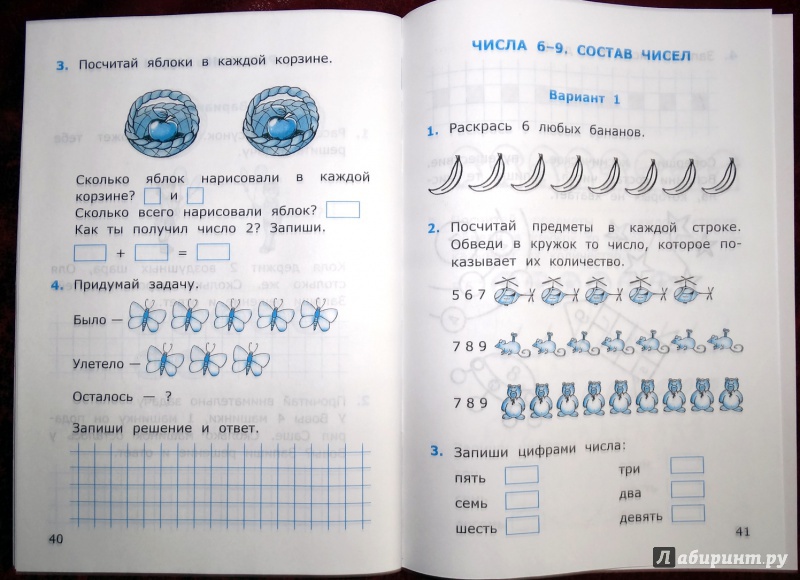 3. Посчитай яблоки в каждой корзине.
Сколько яблок нарисовали в каждой
корзине? и
Сколько всего нарисовали яблок?
Как ты получил число 2? Запиши.
+ =
4. Придумай задачу.
Было —
Улетело —
Осталось — ?
Запиши решение и ответ.
40
ЧИСЛА 6–9. СОСТАВ ЧИСЕЛ
Вариант 1
1. Раскрась 6 любых бананов.
2. Посчитай предметы в каждой строке.
Обведи в кружок то число, которое по-
казывает их количество.
5 6 7
7 8 9
7 8 9
3. Запиши цифрами числа:
пять три
семь два
шесть девять
41
Лабиринт.ру